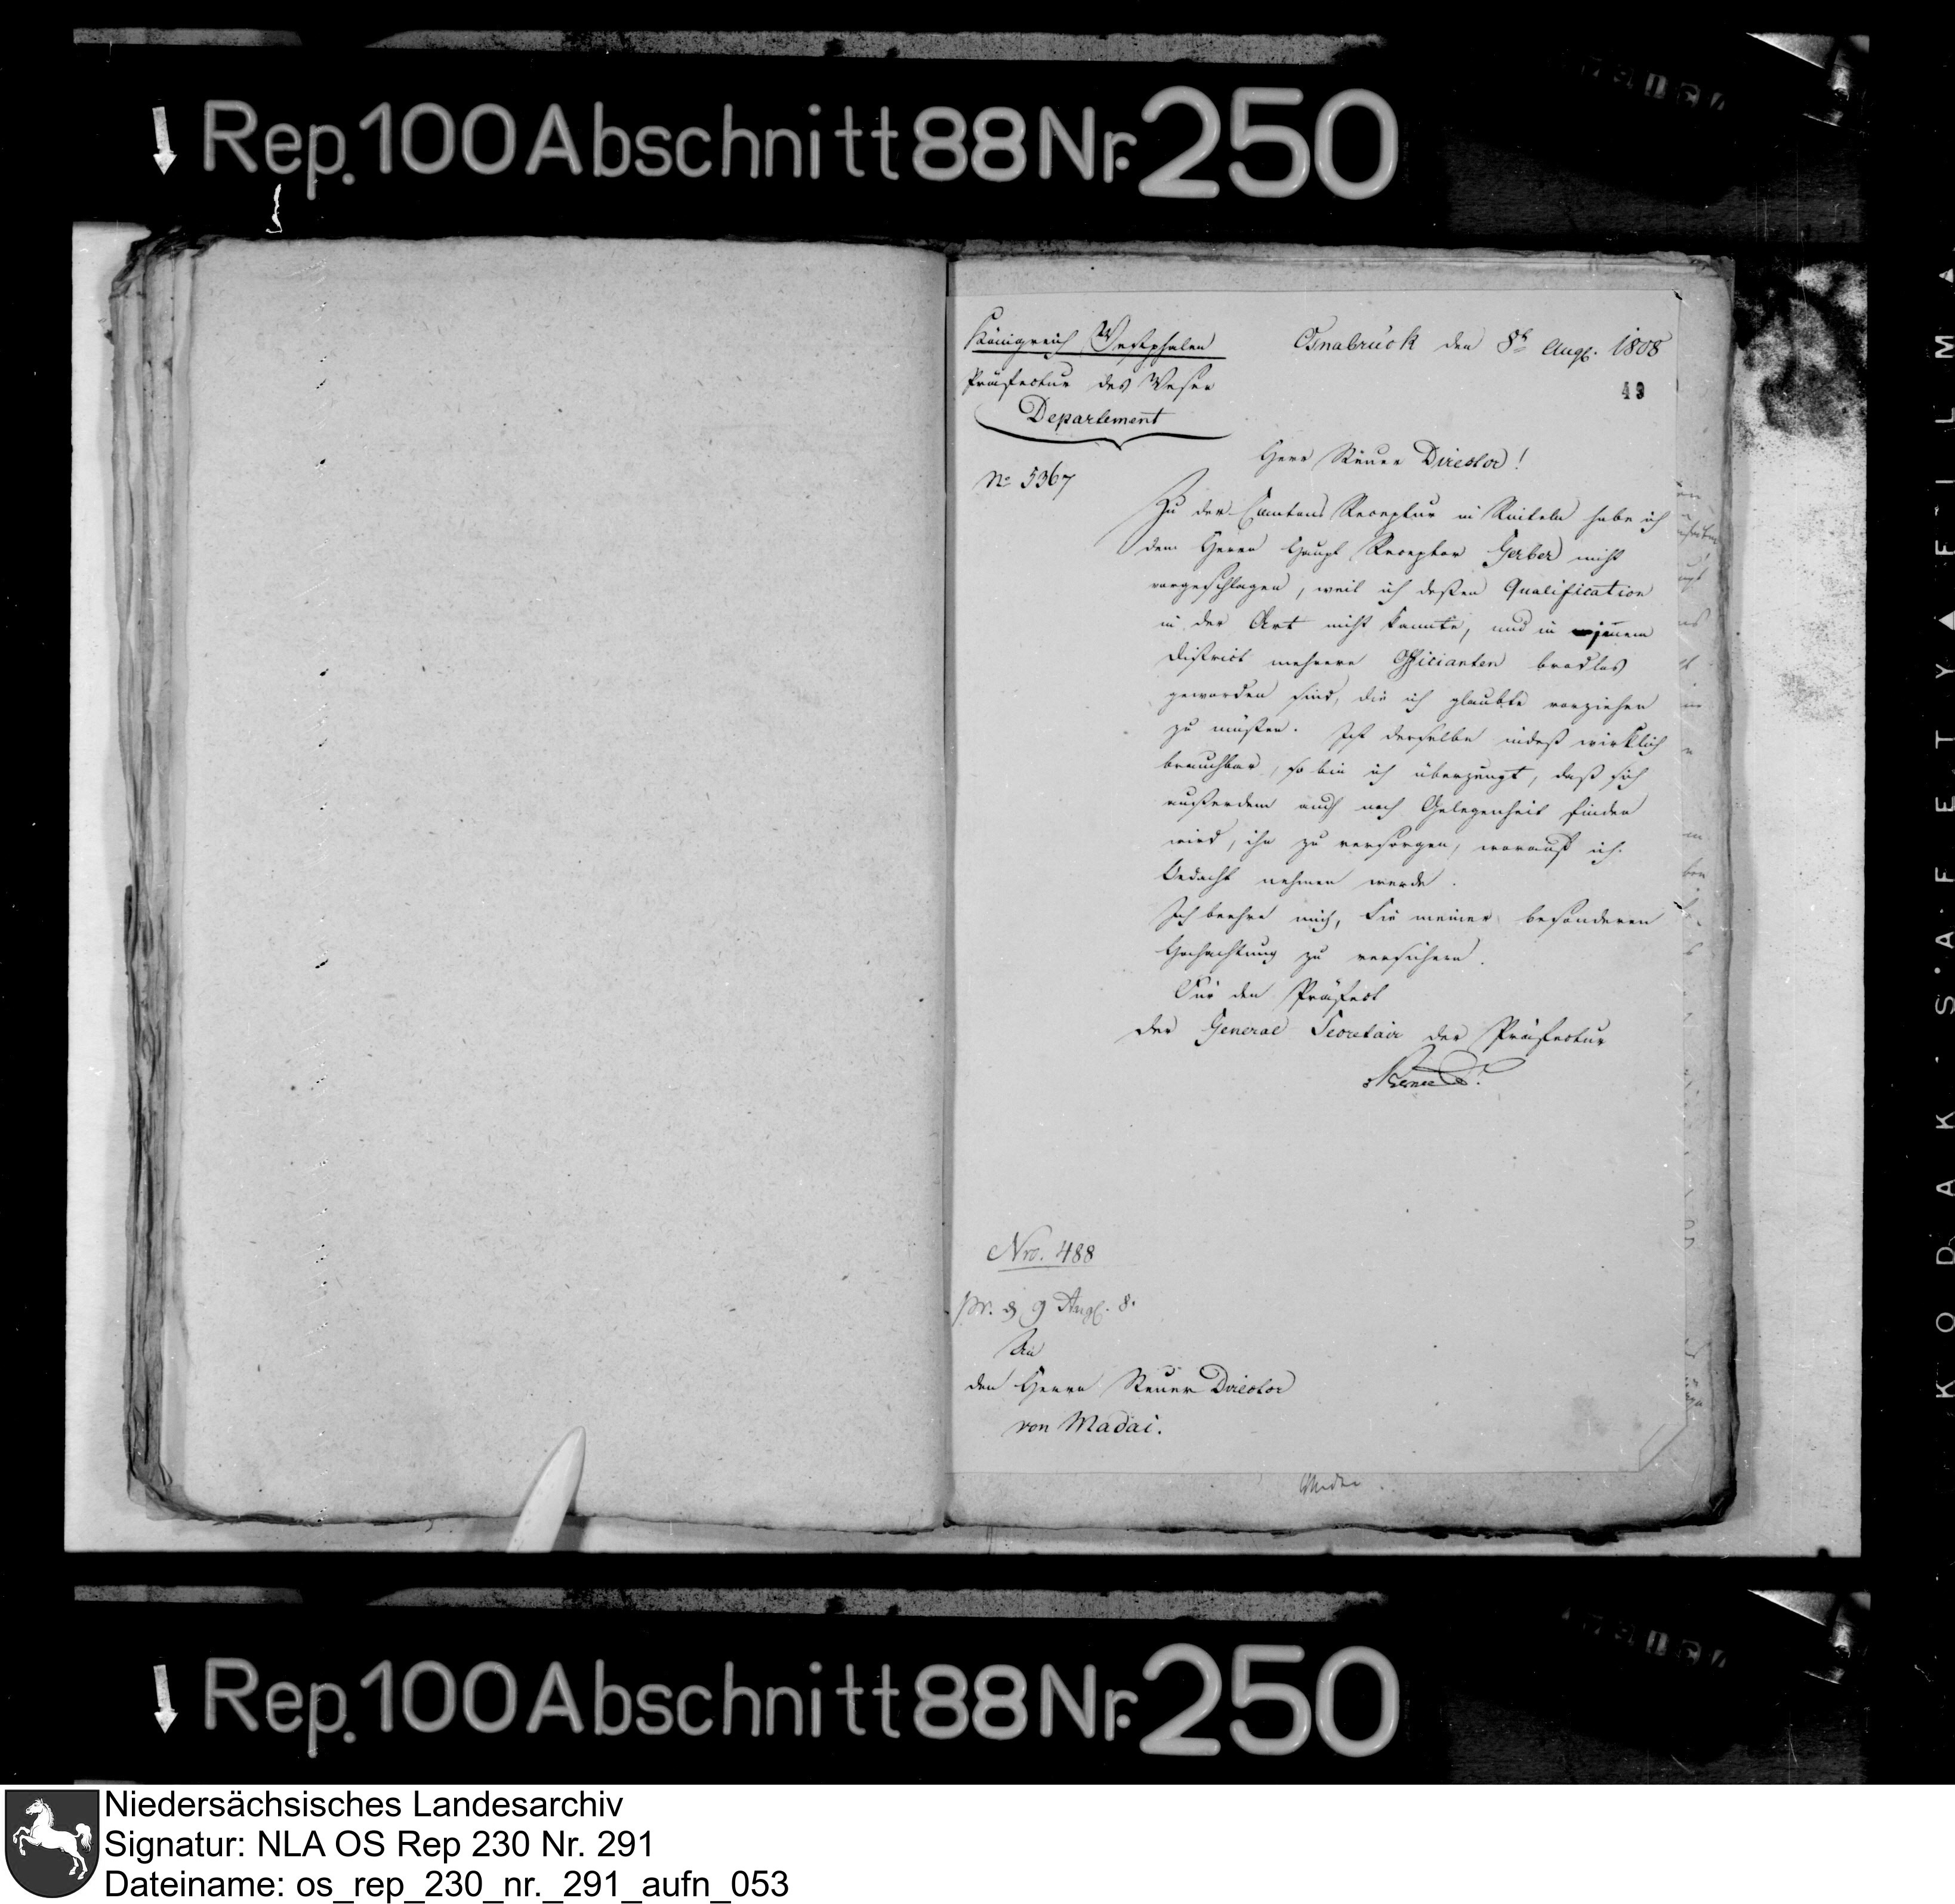 Rep. 100 Abschnitt 88 Nr. 250
Königreich Westphalen
Präfectur des Weser
Departement
No 5367
Osnabrück den 8t Augt. 1808
49
Herr Steuer Director!
Zu der Cantons Receptur in Rinteln habe ich
den Herrn Haupt Receptor Gerber nicht
vorgeschlagen, weil ich deßen Qualification
in der Art nicht kannte, und in jenem
District mehrere Officianten brodlos
geworden sind, die ich glaubte vorziehen
zu müßen. Ist derselbe indeß wirklich
brauchbar, so bin ich überzeugt, daß sich
außerdem auch noch Gelegenheit finden
wird, ihn zu versorgen, worauf ich
Bedacht nehmen werde.
Ich beehre mich, Sie meiner besonderen
Hochachtung zu versichern.
Für den Präfect
der General Secretair der Präfectur
Nro. 488
pr. d 9 Augt. 8.
An
den Herrn Steuer Director
von Madai.
Rep. 100 Abschnitt 88 Nr. 250
KODAK SAFETY FILM
Niedersächsisches Landesarchiv
Signatur: NLA OS Rep 230 Nr. 291
Dateiname: os_rep_230_nr._291_aufn_053